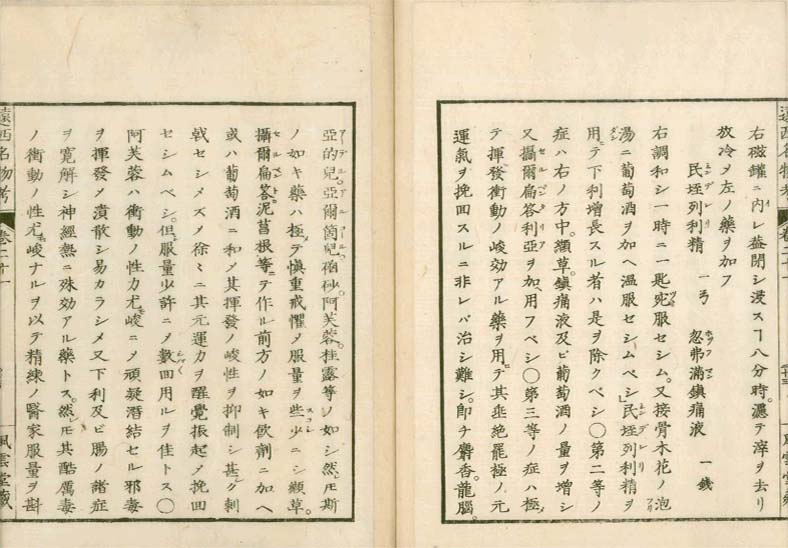 右磁罐ニ内レ葢閉シ浸スヿ八分時。濾テ滓ヲ去リ
放冷メ左ノ藥ヲ加フ
民埊列利精 一弓 忽弗滿鎮痛液 一錢
右調和シ一時ニ一匙兠服セシム。又接骨木花ノ泡
湯ニ葡萄酒ヲ加ヘ温服セシムベシ民埊列利精ヲ
用テ下利増長スル者ハ是ヲ除クベシ〇第二等ノ
症ハ右ノ方中。纈草。鎮痛液及ビ葡萄酒ノ量ヲ増シ
又攝爾扁荅利亞ヲ加用フベシ〇第三等ノ症ハ極メ
テ揮發衝動ノ峻効アル藥ヲ用テ其垂絶罷極ノ元
運氣ヲ挽囬スルニ非レバ治シ難シ。即チ麝香。龍腦。
亞的兒。亞爾箇兒。硇砂。阿芙蓉。桂露等ノ如シ然𪜈斯
ノ如キ藥ハ極テ愼重戒懼メ服量ヲ些少ニシ纈草。
攝爾扁荅。泥菖根等ニテ作ル前方ノ如キ飲劑ニ加ヘ
或ハ葡萄酒ニ和メ其揮發ノ峻性ヲ抑制シ甚グ刺
戟セシメズメ徐〻ニ其元運力ヲ醒覺振起メ挽囬
セシムベシ。但服量少許ニメ數囬用ルヲ佳トス〇
阿芙蓉ハ衝動ノ性力尤峻ニメ頑凝潛結セル邪毒
ヲ揮發メ潰散シ易カラシメ又下利及ビ腸ノ諸症
ヲ寛解シ神經熱ニ殊効アル藥トス。然𪜈其酷厲毒
ノ衝動ノ性尤峻ナルヲ以テ精練ノ醫家服量ヲ斟
遠西名物考 卷二十一
風雲堂藏